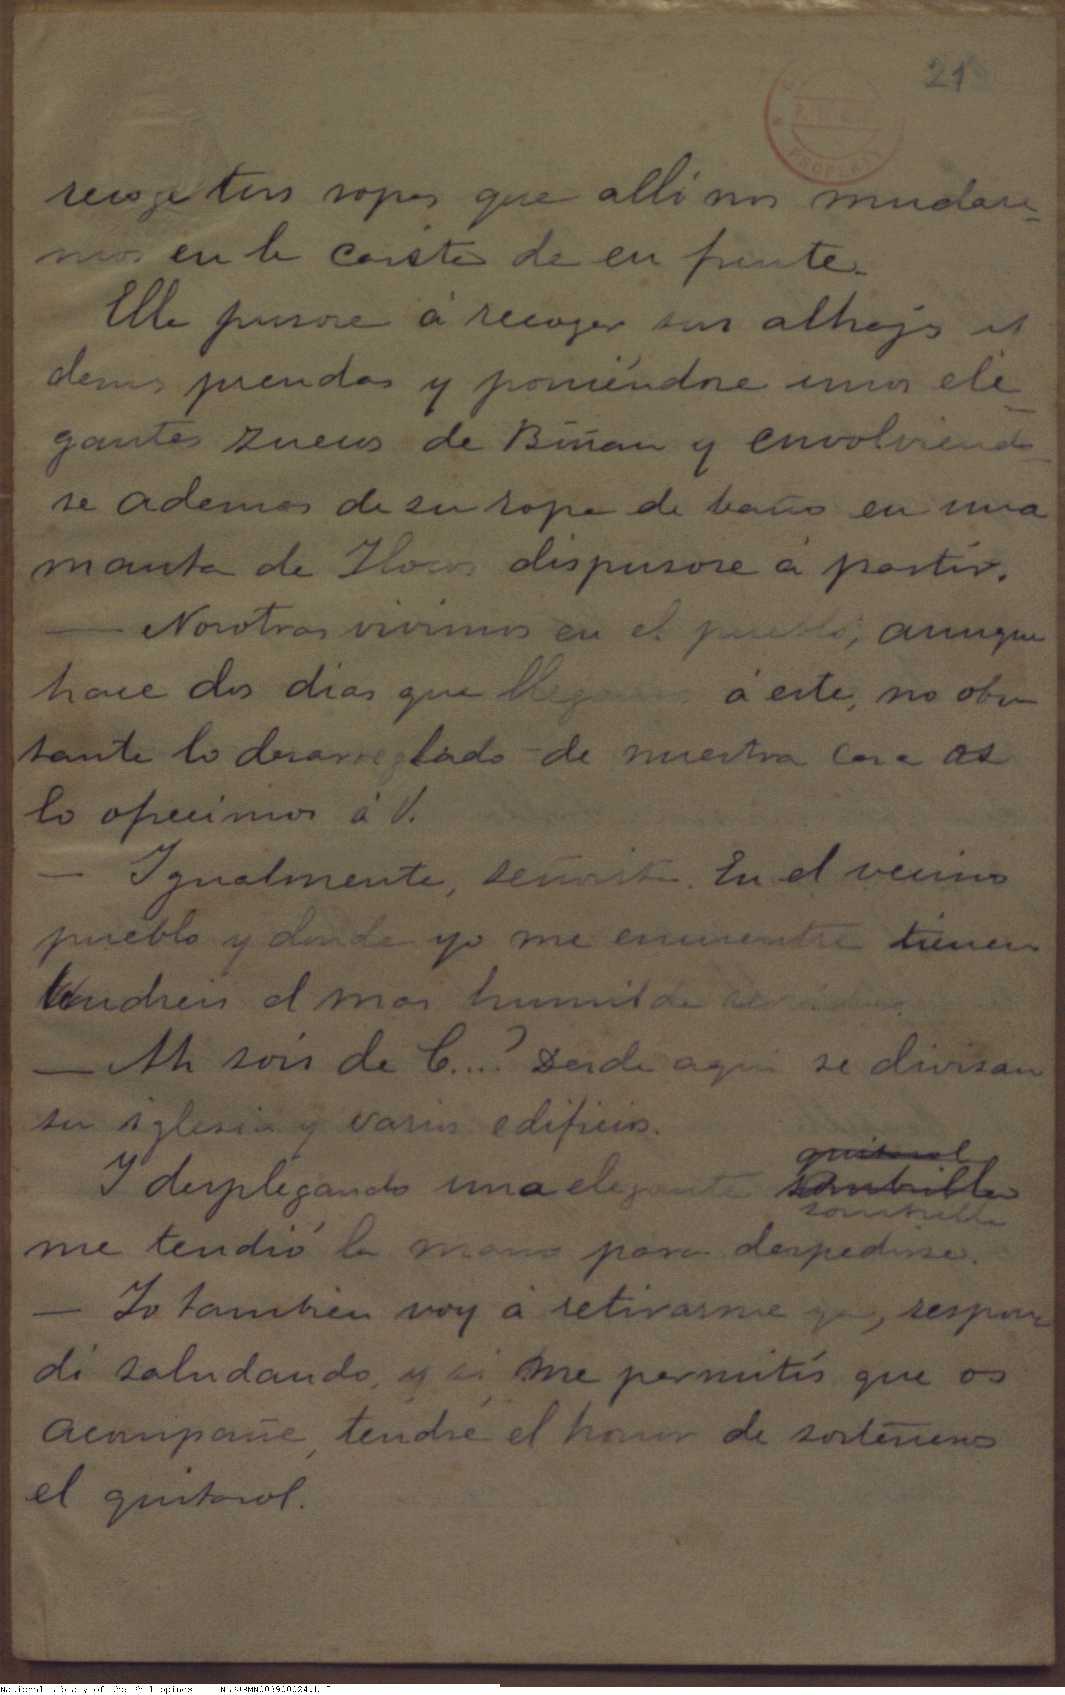 21
recoge tus ropas que alli nos mudare-
mos en la casita de en frente.
Ella pusose á recoger sus alhajas
demas prendas y poniéndose unos ele-
gantes zuecos de Biñan y envolviendo-
se ademas de su ropa de baño en una
manta de Ilocos dispusose á partir.
— Nosotras vivimos en el pueblo, aunque
hace dos dias que llegamos á este, no obs-
tante lo desarreglado de nuestra casa os
lo ofrecimos á V.
— Igualmente, señorita. En el vecino
pueblo y donde yo me encuentre tienen
tendreis el mas humilde servidor.
— Ah sois de C....? Desde aqui se divisan
su iglesia y varios edificios.
quitasol
Y desplegando una elegante sombrilla
sombrilla
me tendió la mano para despedirse.
— Yo tambien voy á retirarme ya, respon-
di saludando, y si me permitís que os
acompañe, tendré el honor de sosteneros
el quitasol.
PROPERTY
National Library of the Philippines